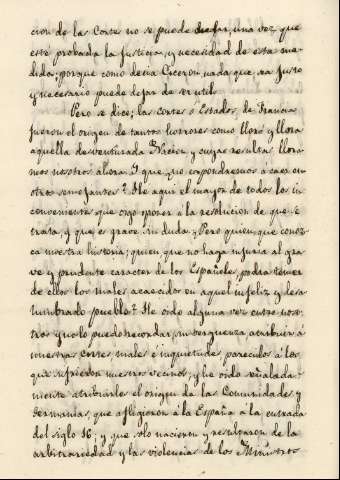 cion de las Cortes no se puede dudar, una vez que
esté probada la Justicia, y necesidad de esta me-
dida; porque como decia Ciceron nada que sea justo
y necesario puede dejar de ser util.
Pero se dice; las Cortes ó Estados, de Francia
fueron el origen de tantos horrores como lloró y llora
aquella desventurada Nacion y cuyas resultas llora-
mos nosotros ahora. I que ¿no expondremos á caer en
otros semejantes? He aqui el mayor de todos los in-
convenientes que oygo oponer á la resolucion de que se
trata, y que es grave sin duda; Pero quien, que conoz-
ca nuestra historia; quien que no haga injuria al gra-
ve y prudente caracter de los Españoles, podrá temer
de ellos los males acaecidos en aquel infeliz y des-
lumbrado pueblo? He oido alguna vez entre noso-
tros y no lo puedo recordar, sin verguenza atribuir á
nuestras cortes males é inquietudes parecidos á los
que sufrieron nuestros vecinos; y he oido señalada-
mente atribuirles el origen de las Comunidades y
Germanias, que afligieron á la España á la entrada
del siglo 16; y que solo nacieron y resultaron de la
arbitrariedad y las violencias de los Ministros